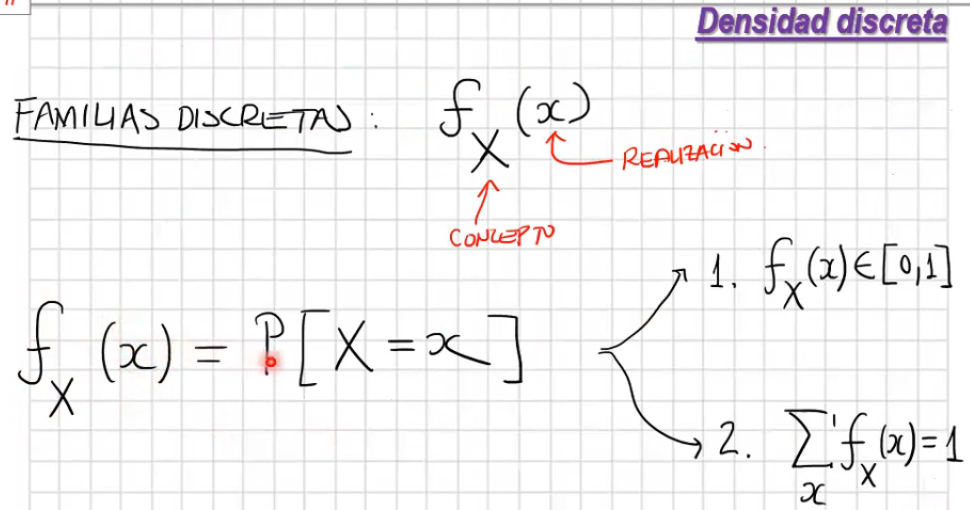 Densidad discreta
FAMILIAS DISCRETAS : f_X (x)
REALIZACIÓN.
CONCEPTO
1. f_X (x) ∈ [0,1]
f_X (x) = P [X = x]
2. ∑_x f_X (x) = 1